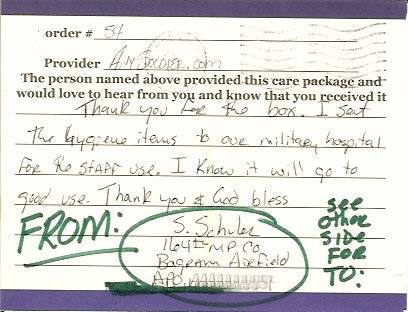 order # 54
Provider AnySoldier.com
The person named above provided this care package and
would love to hear from you and know that you received it
Thank you for the box. I sent
the hygiene items to our military hospital
for the staff use. I know it will go to
good use. Thank you & God bless
FROM:
S. Schuler
164th MP Co
Bagram Airfield
APO
see
other
side
FOR
TO: